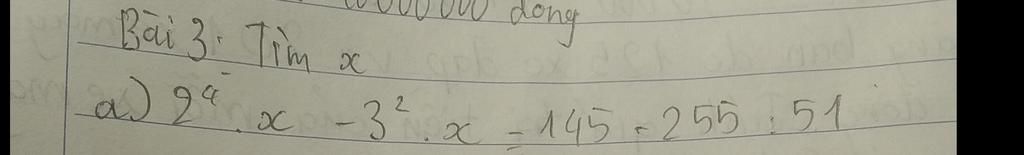 000 000 dong
Bài 3. Tìm x
a) 2⁴ . x - 3² . x = 145 - 255 : 51